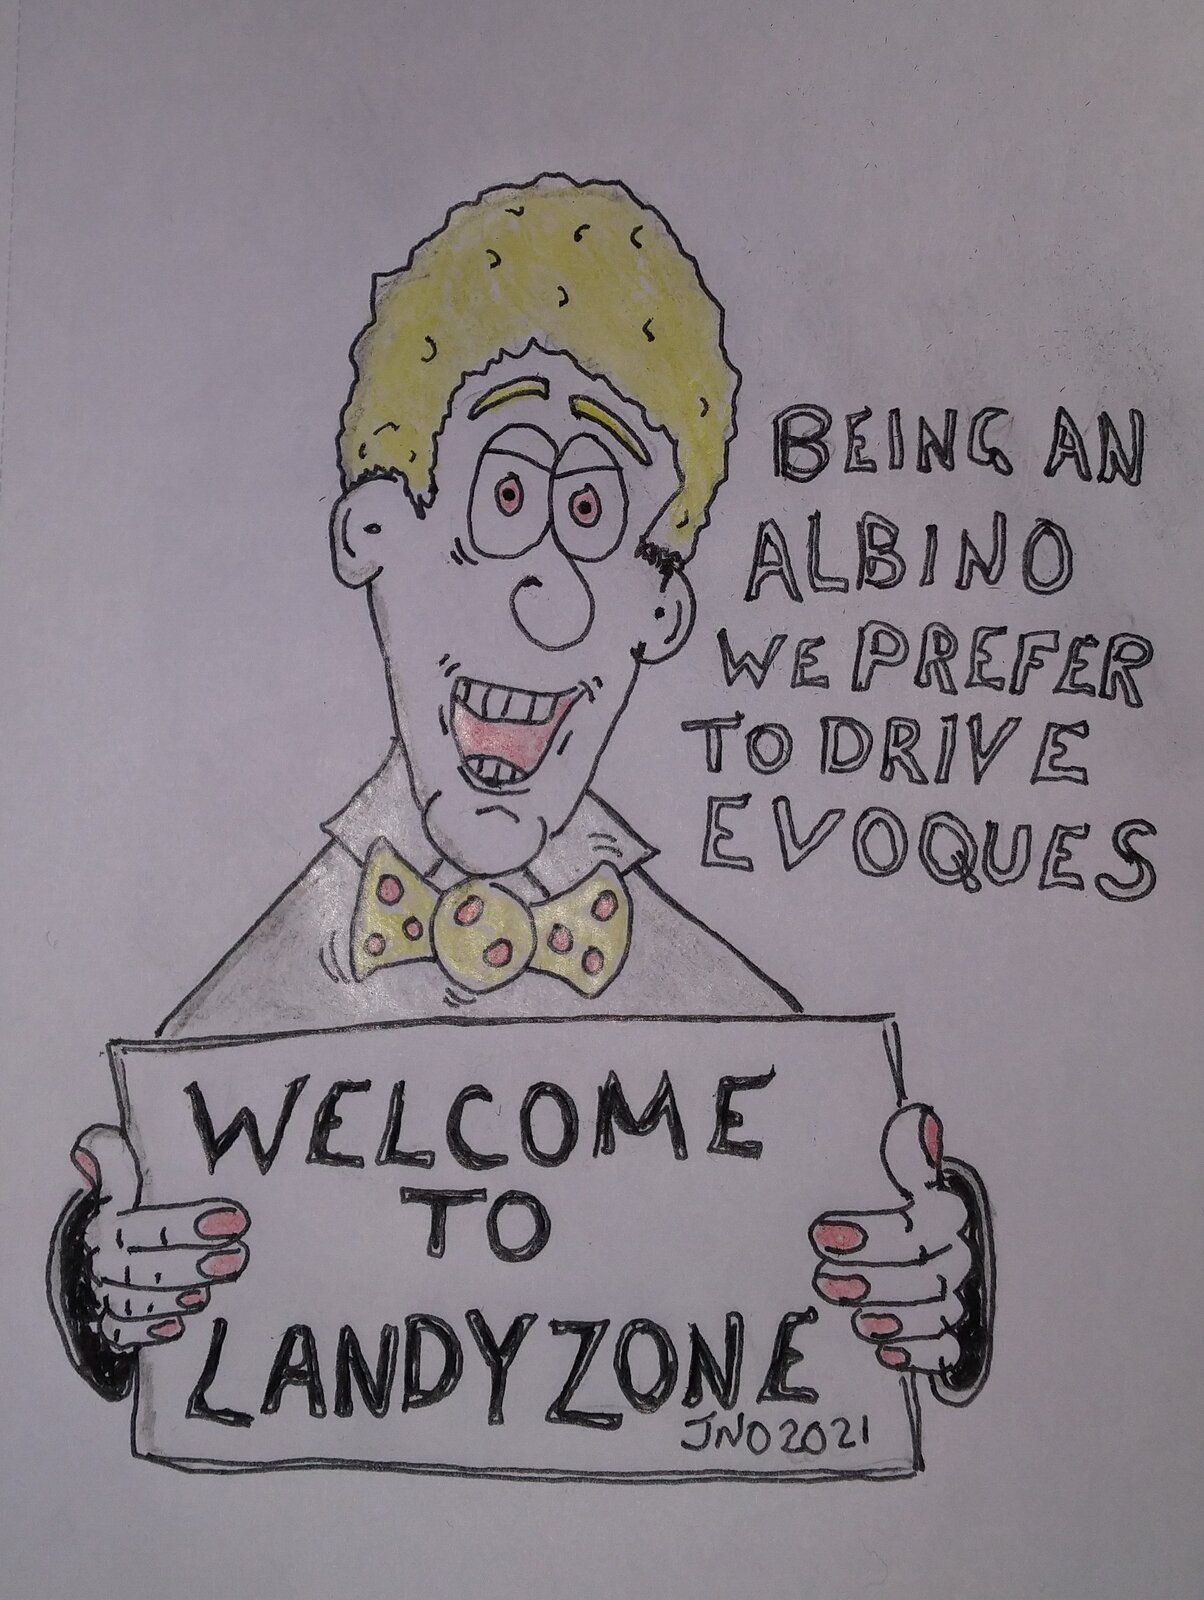 BEING AN
ALBINO
WE PREFER
TO DRIVE
EVOQUES
WELCOME
TO
LANDYZONE
JNO2021